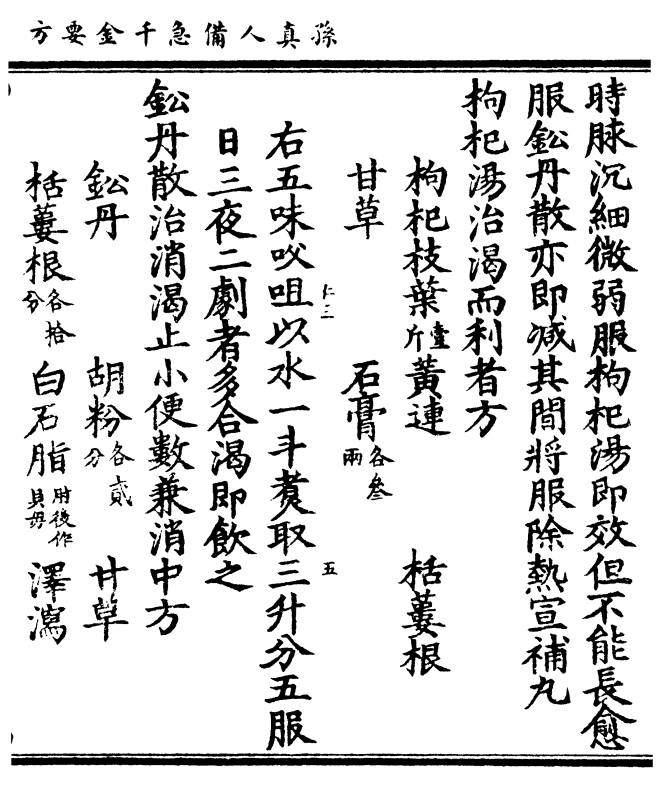 孫真人備急千金要方
時脉沉細微弱服枸杞湯即效但不能長愈
服鈆丹散亦即减其間將服除熱宣補丸
枸杞湯治渴而利者方
枸杞枝葉壹斤 黃連 栝蔞根
甘草 石膏各叁兩
右五味㕮咀以水一斗煑取三升分五服
仁三
五
日三夜二劇者多合渴即飲之
鈆丹散治消渴止小便數兼消中方
鈆丹 胡粉各貳分 甘草
栝蔞根各拾分 白石脂肘後作貝母 澤瀉